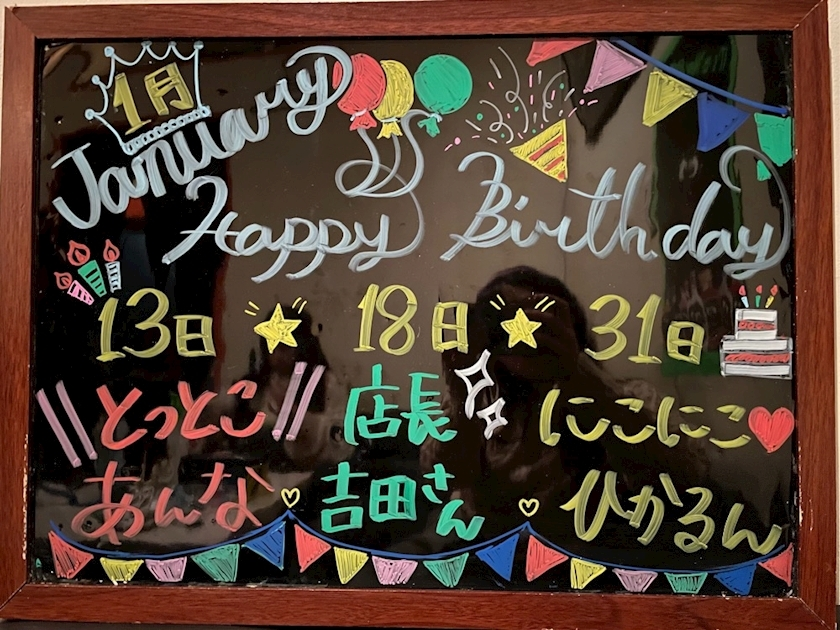 1月
January
Happy Birthday
13日 18日 31日
とっとこ 店長 にこにこ
あんな 吉田さん ひかるん